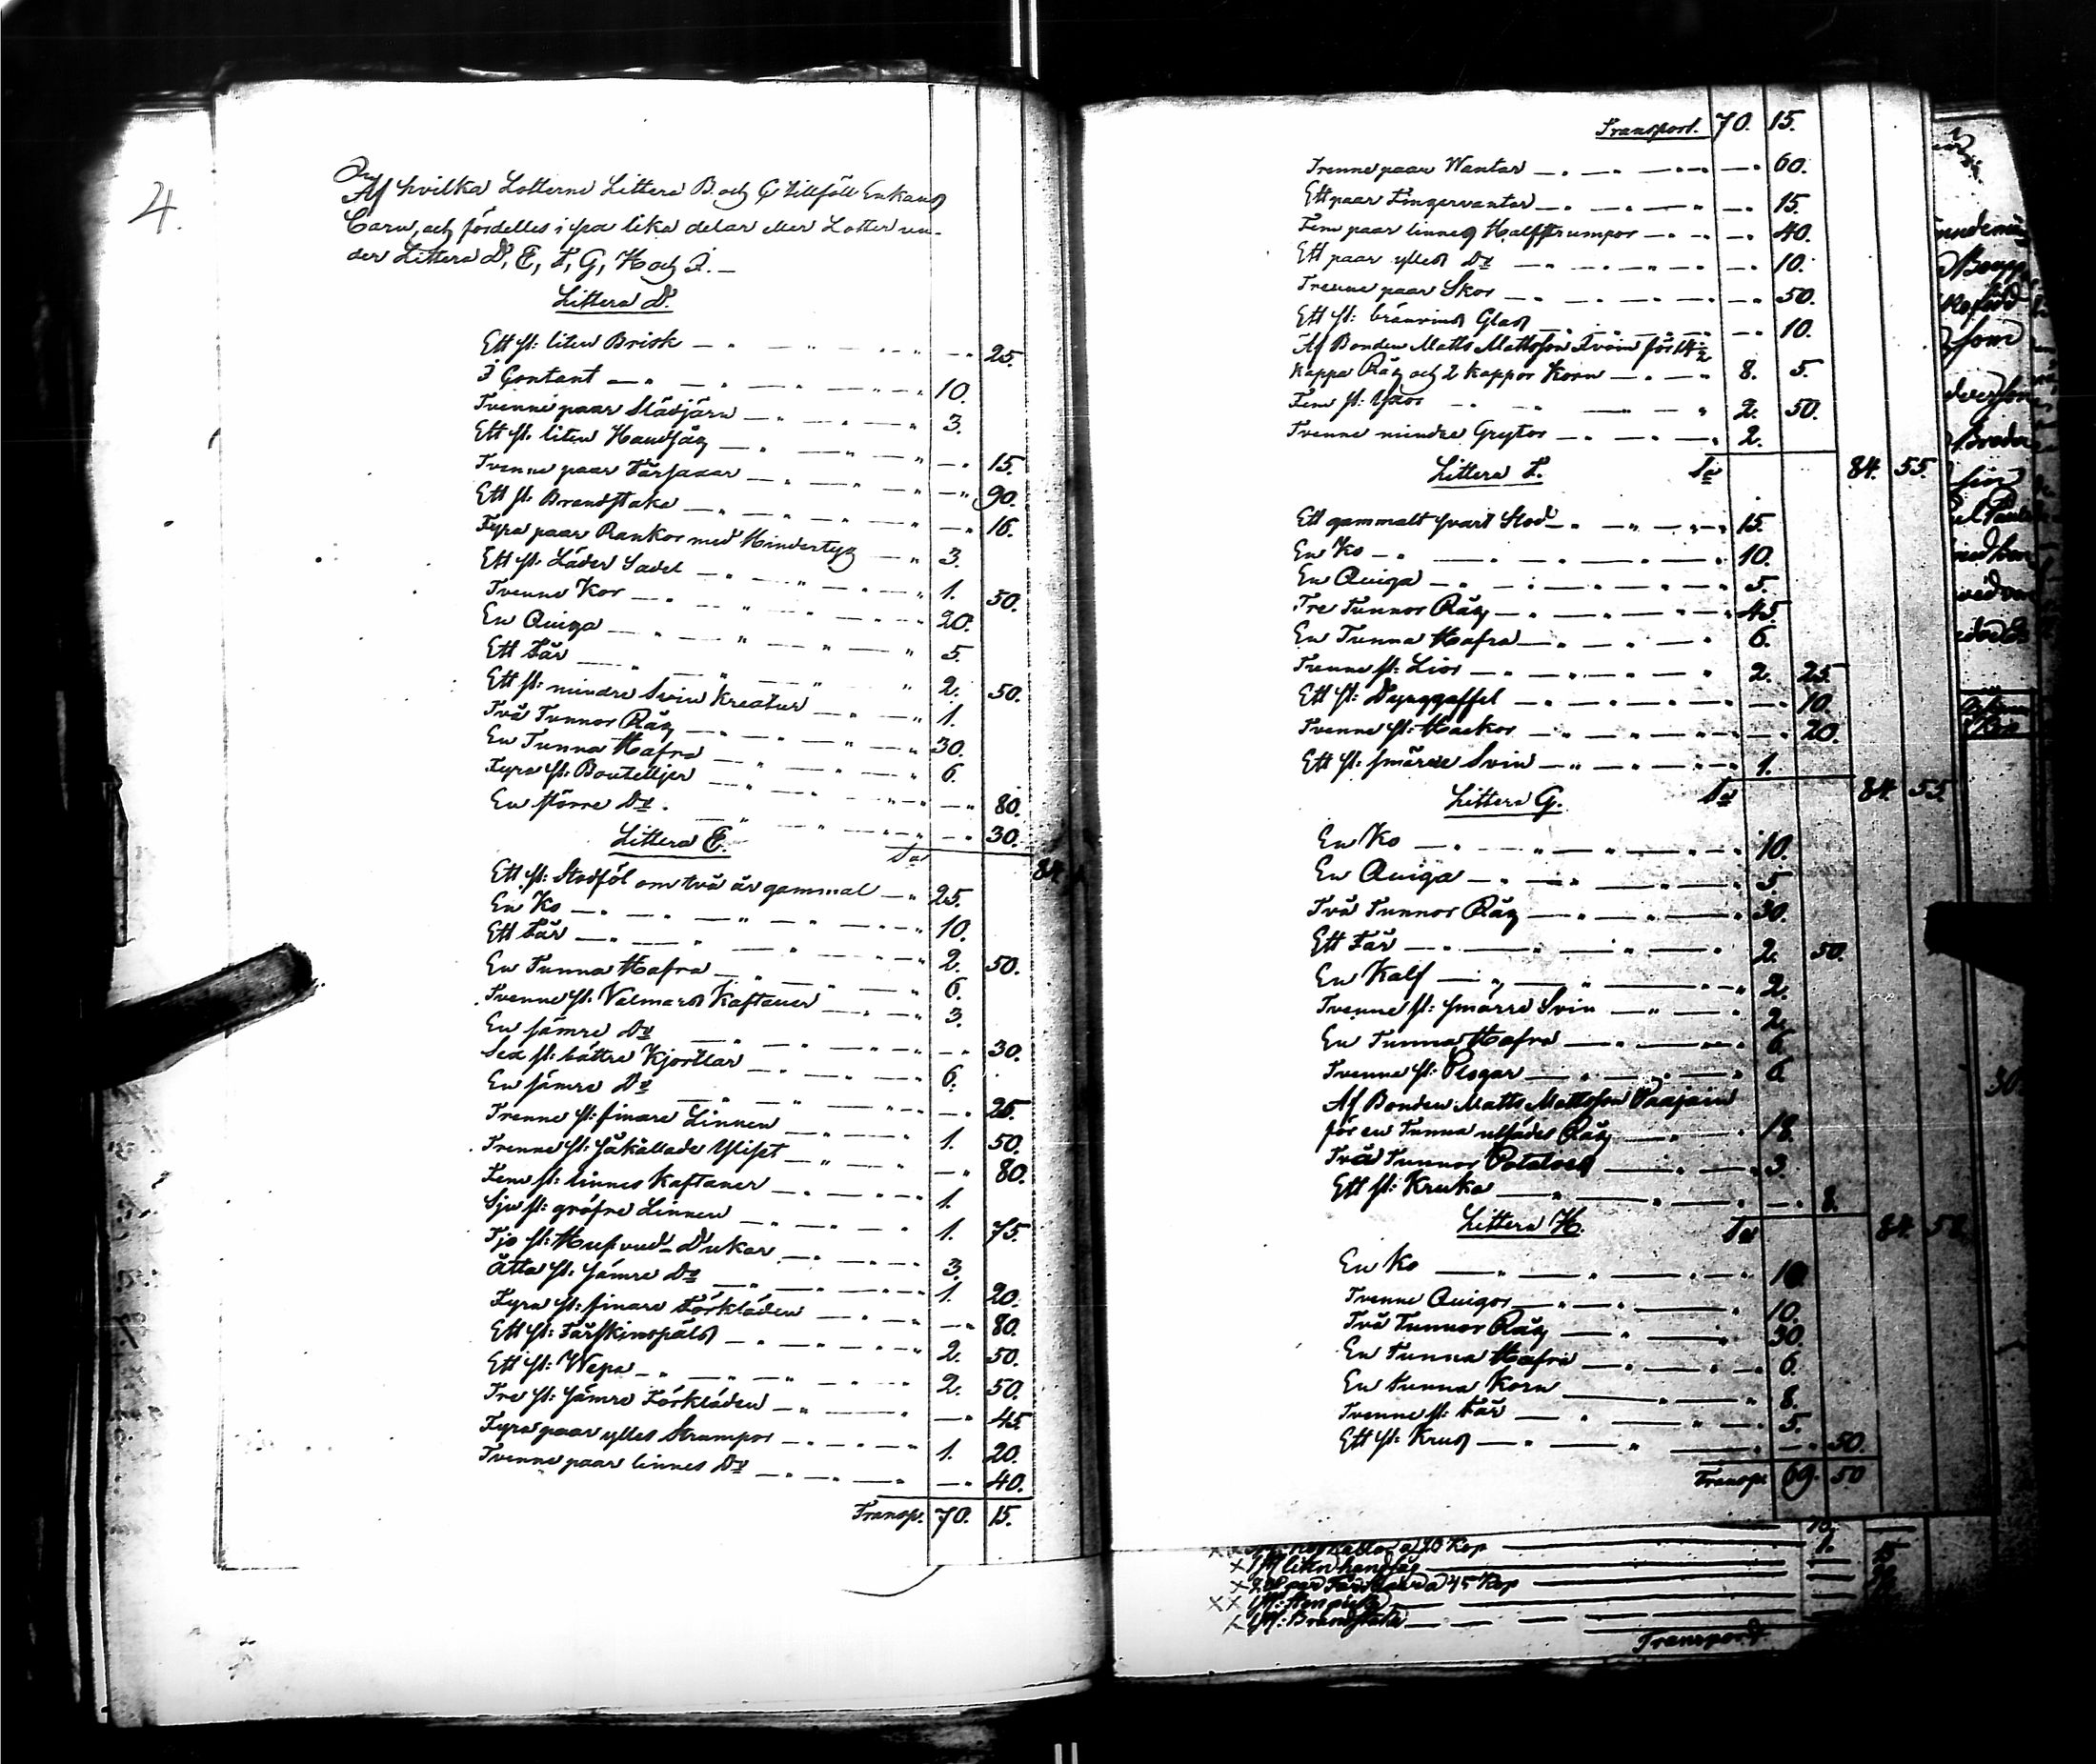 4.
Af hvilka Lotterne Littera B. och C tillföll Enkans
Barn, och fördelles i sex lika delar eller Lotter un-
der Littera D, E, F, G, H och I. —
Littera D.
Ett st: liten Brisk — " — 25.
I Contant — " 10.
Tvenne paar Slädjärn — " 3.
Ett st. liten Handsåg — " — 15.
Tvenne paar Fårsaxar — " — 90.
Ett st. Brandstake — " — 16.
Fyra paar Rankor med Hindertyg — " 3.
Ett st. Läder Sadel — " 1. 50.
Tvenne Kor — " 20.
En Quiga — " 5.
Ett Får — " 2. 50.
Ett st: mindre Svin Kreatur — " 1.
Två Tunnor Råg — " 30.
En Tunna Hafra — " 6.
Fyra st: Boutelljer — " — 80.
En större Do. — " — 30.
Littera E. Sa 84.
Ett st: Stodföl om två år gammal — " 25.
En Ko — " 10.
Ett Får — " 2. 50.
En Tunna Hafra — " 6.
Tvenne st. Valmars Kaftaner — " 3.
En sämre Do — " — 30.
Sex st: bättre Kjortlar — " 6.
En sämre Do — " — 25.
Trenne st: finare Linnen — " 1. 50.
Trenne st: såkallade — " — 80.
Fem st: linnes Kaftaner — " 1.
Sju st: gröfre Linnen — " 1. 75.
Tjo st: Hufvud-Dukar — " 3.
Åtta st: sämre Do — " 1. 20.
Fyra st: finare Förkläden — " — 80.
Ett st: Fårskinspäls — " 2. 50.
Ett st: Wepa — " 2. 50.
Tre st: sämre Förkläden — " — 45.
Fyra paar ylles Strumpor — " 1. 20.
Tvenne paar linnes Do — " — 40.
Transp. 70. 15.
Transport. 70. 15.
Trenne paar Wantar — " — 60.
Ett paar Fingervantar — " — 15.
Fem paar linnes Halfstrumpor — " — 40.
Ett paar ylles Do — " — 10.
Trenne paar Skor — " — 50.
Ett st: bränvins Glas — " — 10.
Af Bonden Matts Mattsson för 14½
kappa Råg och 2 kappor Korn — " 8. 5.
Fem st: — " 2. 50.
Tvenne mindre Grytor — " 2.
Littera F. Sa 84. 55.
Ett gammalt svart Stod — " 15.
En Ko — " 10.
En Quiga — " 5.
Tre Tunnor Råg — " 45.
En Tunna Hafra — " 6.
Tvenne st: Lior — " 2. 25.
Ett st: Dynggaffel — " — 10.
Tvenne st: Hackor — " — 20.
Ett st: smärre Svin — " 1.
Littera G. Sa 84. 55.
En Ko — " 10.
En Quiga — " 5.
Två Tunnor Råg — " 30.
Ett Får — " 2. 50.
En Kalf — " 2.
Tvenne st: smärre Svin — " 2.
En Tunna Hafra — " 6.
Tvenne st: Plogar — " 6.
Af Bonden Matts Mattsson
för en Tunna utsådes Råg — " 18.
Två Tunnor Potatoes — " 3.
Ett st: Kruka — " — 8.
Littera H. Sa 84. 58.
En Ko — " 10.
Tvenne Quigor — " 10.
Två Tunnor Råg — " 30.
En Tunna Hafra — " 6.
En Tunna Korn — " 8.
Tvenne st: Får — " 5.
Ett st: Krus — " — 50.
Transp. 69. 50.
a 20 Kop
X 1 st liten handsåg
X 2 par Fårsaxar a 45 Kop
XX 1 st:
X 1 st: Brandstake
Transport.